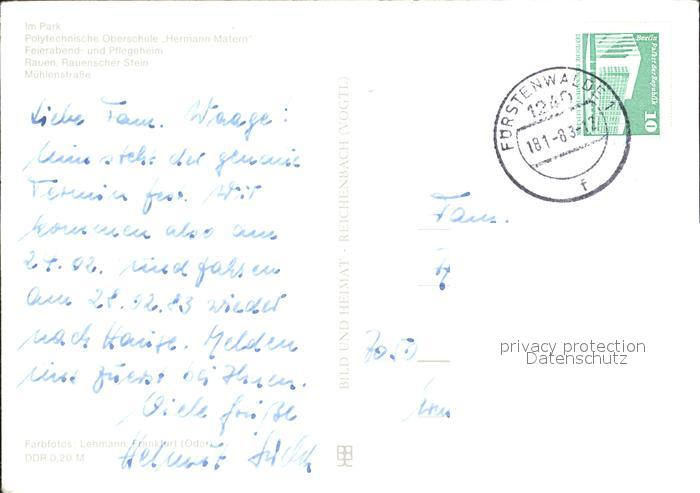 Im Park
Polytechnische Oberschule „Hermann Matern"
Feierabend- und Pflegeheim
Rauen, Rauenscher Stein
Mühlenstraße
Liebe Fam. Waage!
Nun steht der genaue
Termin fest. Wir
kommen also am
24.02. und fahren
am 28.02.83 wieder
nach Hause. Melden
uns zuerst bei Ihnen.
Viele Grüße
Helmut
Farbfotos: Lehmann, Frankfurt (Oder)
DDR 0,20 M
BILD UND HEIMAT · REICHENBACH (VOGTL)
FÜRSTENWALDE 1
1240
18.1.-8 3-12
f
Berlin, Palast der Republik
10
Fam.
7050
privacy protection
Datenschutz